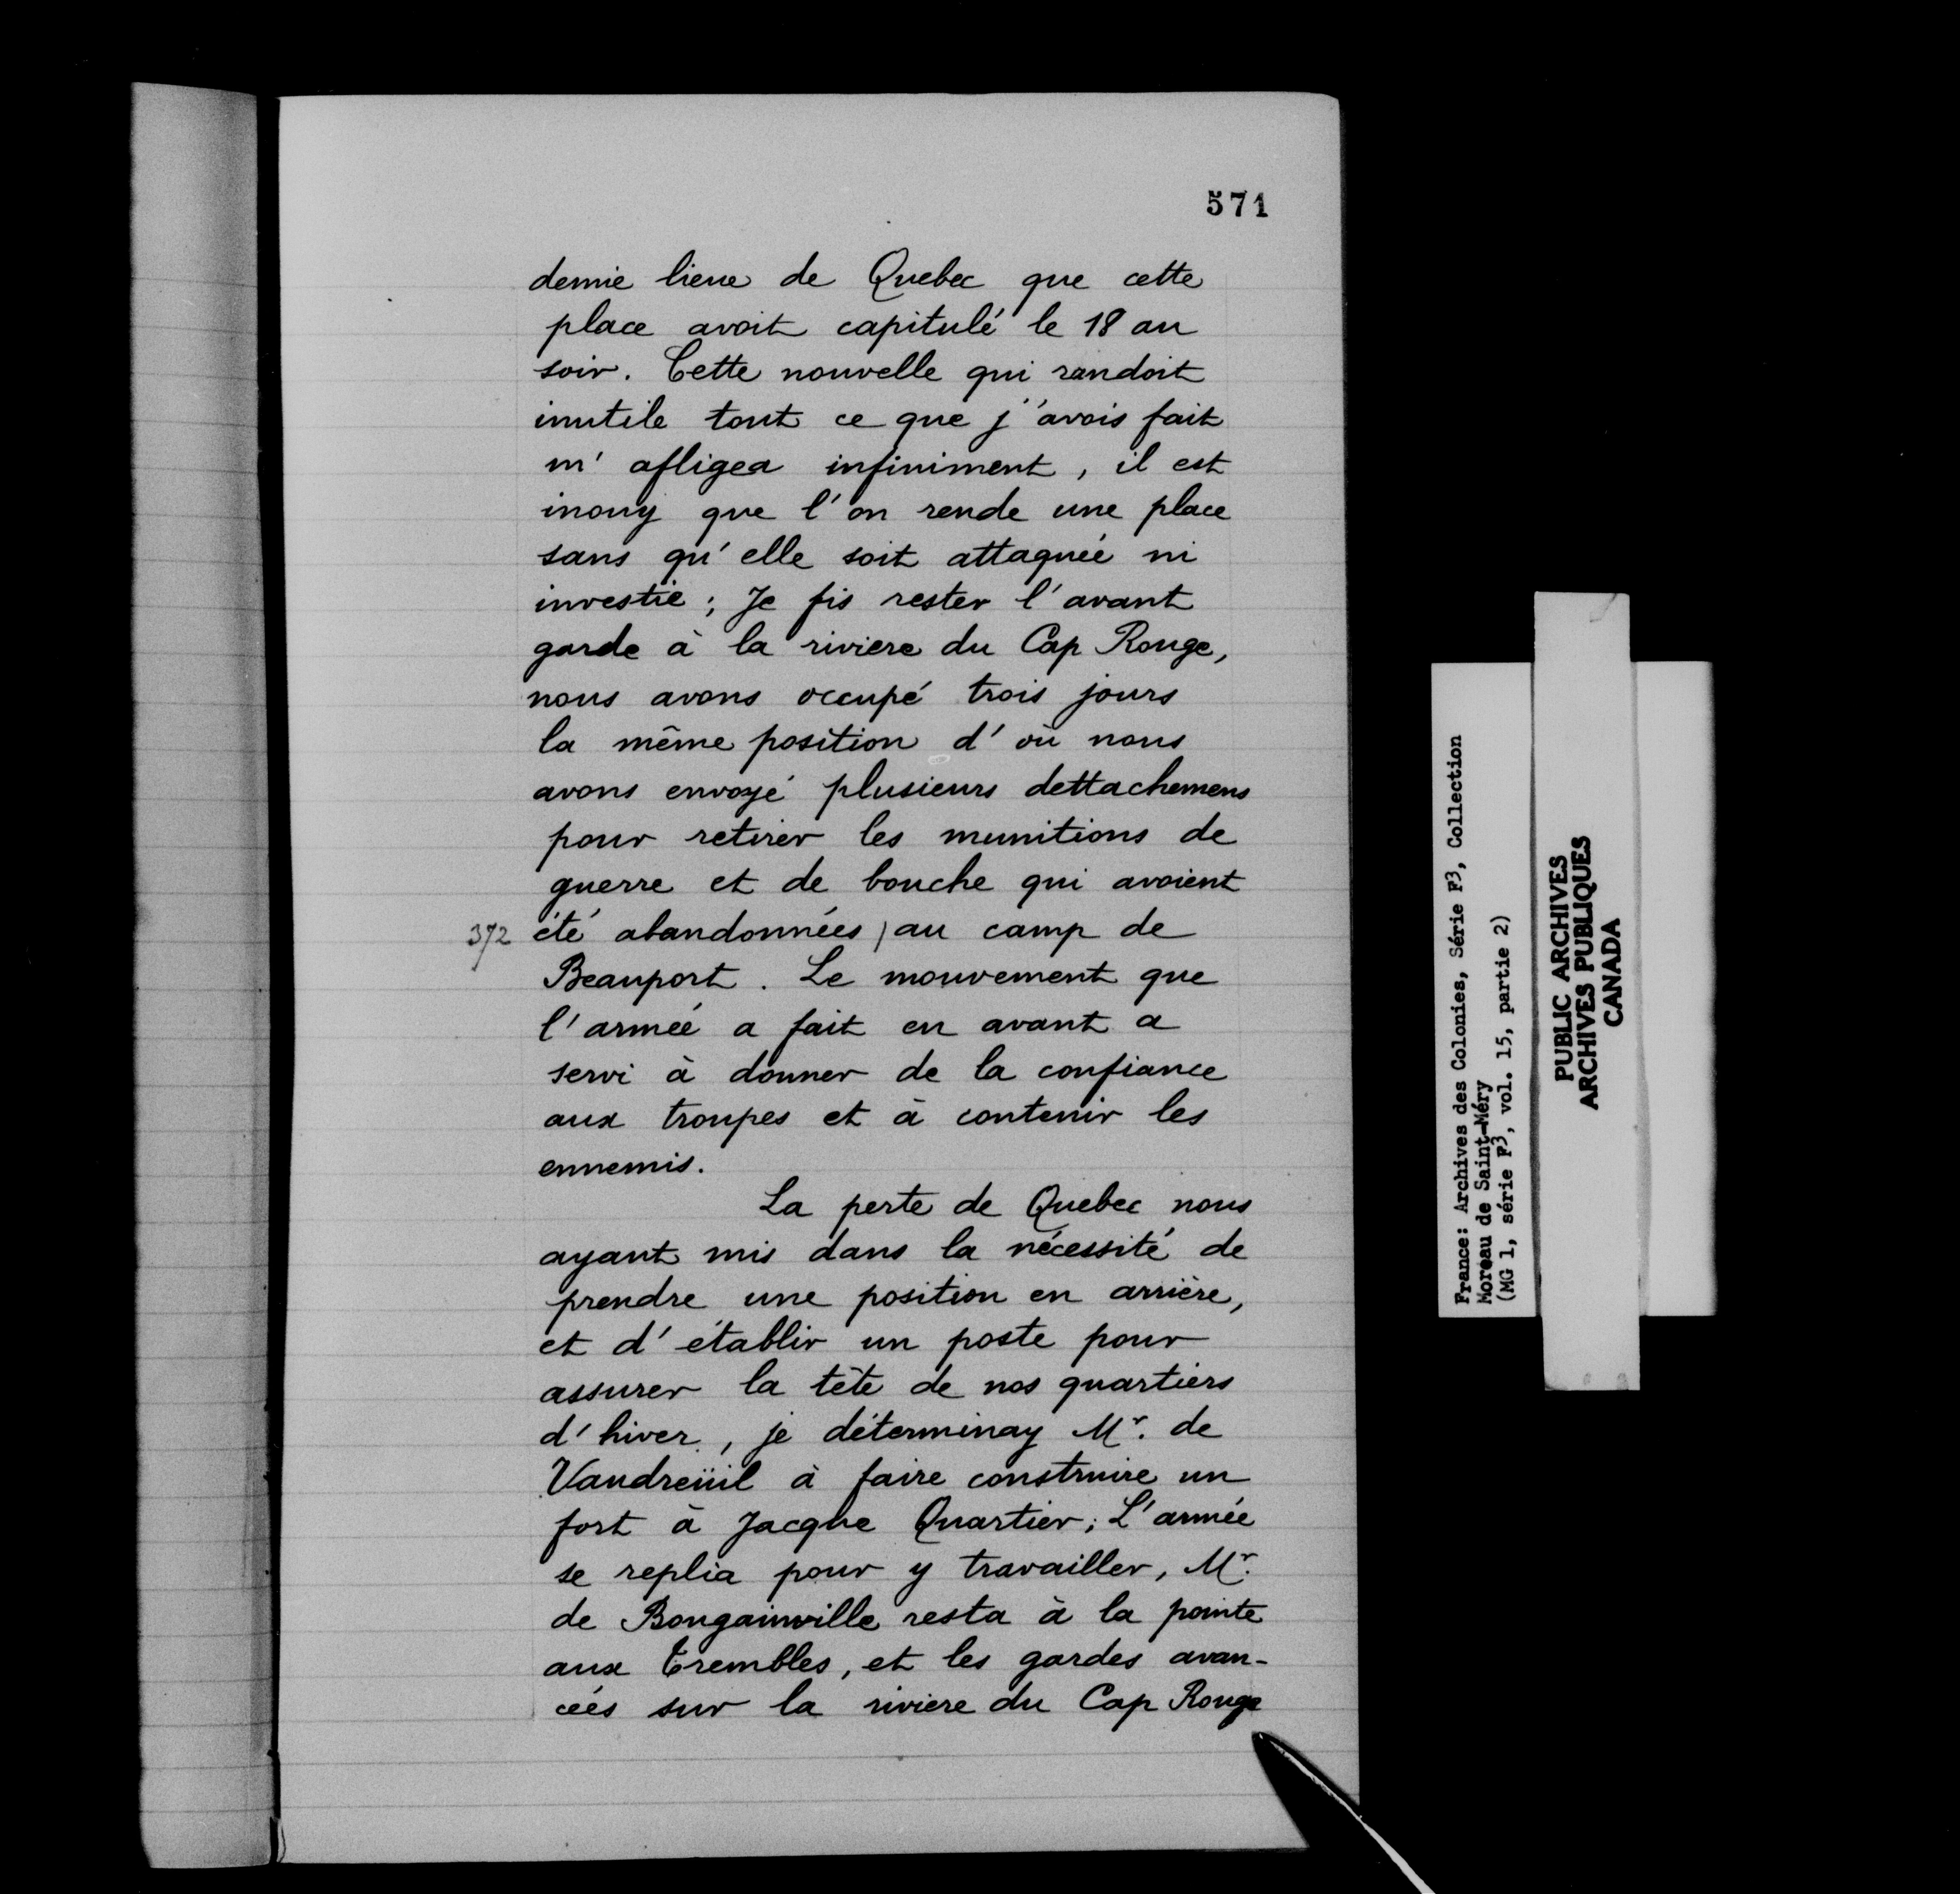 571
demie lieue de Quebec que cette
place avoit capitulé le 18 au
soir. Cette nouvelle qui randoit
inutile tout ce que j'avois fait
m'afligea infiniment, il est
inouy que l'on rende une place
sans qu'elle soit attaquée ni
investie; Je fis rester l'avant
garde à la riviere du Cap Rouge,
nous avons occupé trois jours
la même position d'où nous
avons envoyé plusieurs dettachemens
pour retirer les munitions de
guerre et de bouche qui avoient
372 été abandonnées / au camp de
Beauport. Le mouvement que
l'armée a fait en avant a
servi à donner de la confiance
aux troupes et à contenir les
ennemis.
La perte de Quebec nous
ayant mis dans la nécessité de
prendre une position en arrière,
et d'établir un poste pour
assurer la tête de nos quartiers
d'hiver, je déterminay Mr. de
Vaudreüil à faire construire un
fort à Jacque Quartier; L'armée
se replia pour y travailler, Mr.
de Bougainville resta à la pointe
aux Trembles, et les gardes avan-
cées sur la riviere du Cap Rouge
France: Archives des Colonies, Série F3, Collection
Moreau de Saint-Méry
(MG 1, série F3, vol. 15, partie 2)
PUBLIC ARCHIVES
ARCHIVES PUBLIQUES
CANADA